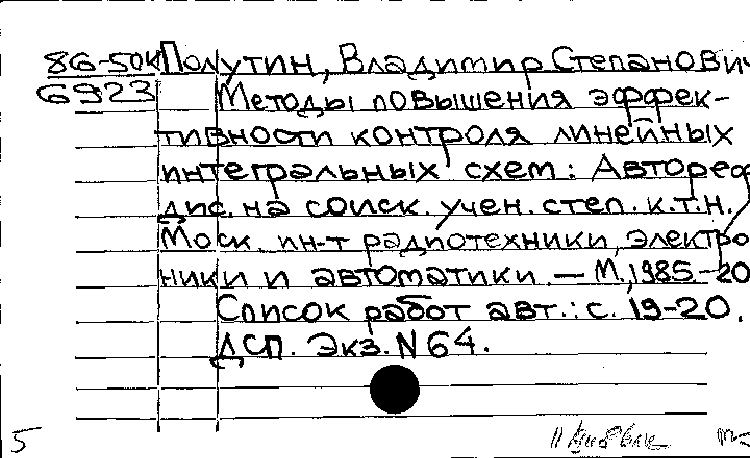 86-50к Полутин, Владимир Степанович
6923 Методы повышения эффек-
тивности контроля линейных
интегральных схем: Автореф
дис. на соиск. учен. степ. к.т.н.
Моск. ин-т радиотехники, электро
ники и автоматики. — М., 1985.-20
Список работ авт.: с. 19-20.
ДСП. Экз. N 64.
5